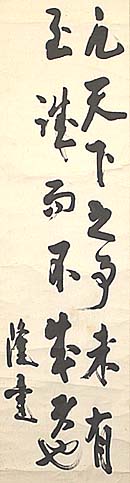 凡天下之事未有
至誠而不成者也
隆書